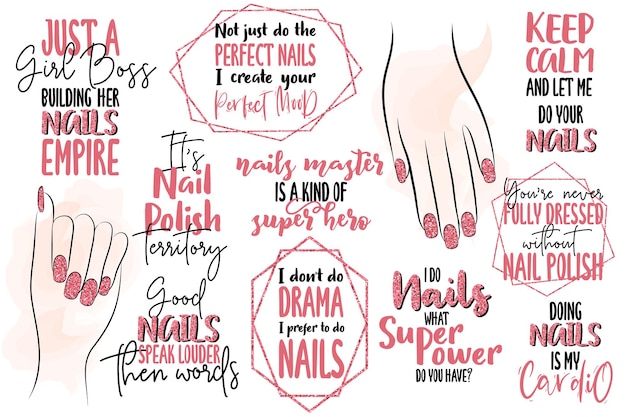 JUST A
Girl Boss
BUILDING HER
NAILS
EMPIRE
Not just do the
PERFECT NAILS
I create your
Perfect MooD
KEEP
CALM
AND LET ME
DO YOUR
NAILS
It's
Nail
Polish
territory
nails master
IS A KIND OF
super hero
You're never
FULLY DRESSED
without
NAIL POLISH
Good
NAILS
SPEAK LOUDER
then words
I dont do
DRAMA
I prefer to do
NAILS
I DO
Nails
WHAT
Super
Power
DO YOU HAVE?
DOING
NAILS
IS MY
CardiO